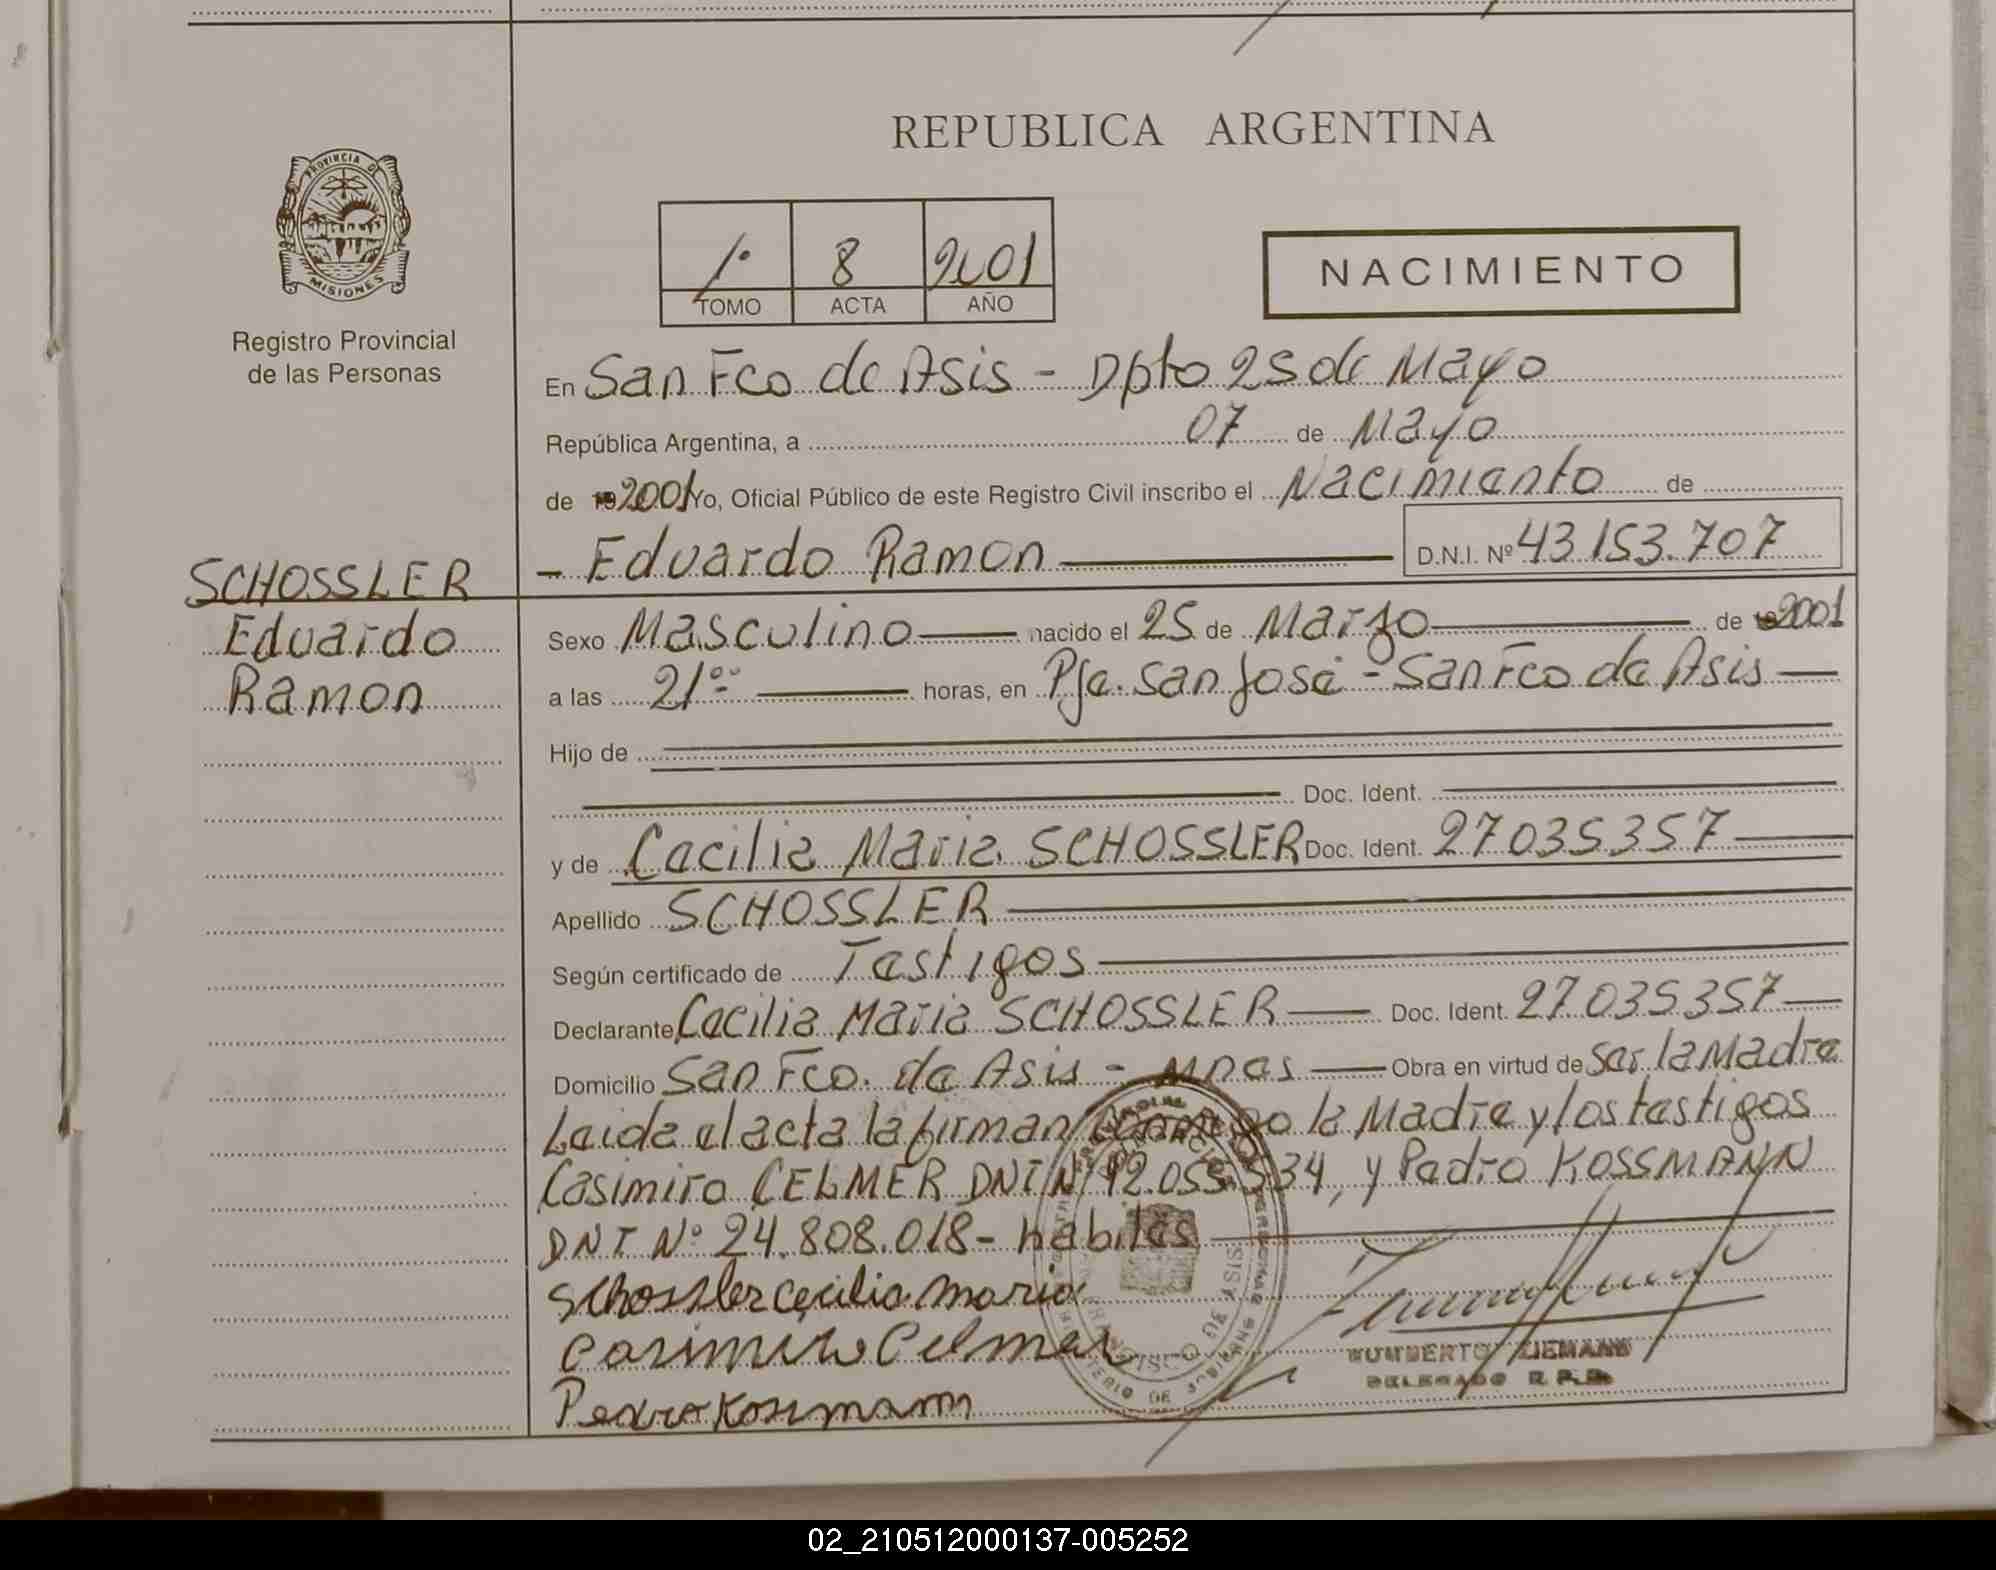 REPUBLICA ARGENTINA
PROVINCIA D
MISIONES
Registro Provincial
de las Personas
1º 8 2001
TOMO ACTA AÑO
NACIMIENTO
En San Fco de Asis - Dpto 25 de Mayo
República Argentina, a 07 de Mayo
de 19 2001 Yo, Oficial Público de este Registro Civil inscribo el Nacimiento de
- Eduardo Ramon D.N.I. Nº 43.153.707
SCHOSSLER
Eduardo
Ramon
Sexo Masculino nacido el 25 de Marzo de 2001
a las 21ºº horas, en Pje. San José - San Fco de Asis
Hijo de
Doc. Ident.
y de Cecilia Maria SCHOSSLER Doc. Ident. 27035357
Apellido SCHOSSLER
Según certificado de Testigos
Declarante Cecilia Maria SCHOSSLER Doc. Ident. 27.035357
Domicilio San Fco. de Asis - Mnes Obra en virtud de Ser la Madre
Leida el acta la firman conmigo la Madre y los testigos
Casimiro CELMER DNI Nº 12.055.534, y Pedro KOSSMANN
DNI Nº 24.808.018 - habiles
Schossler Cecilia Maria
Casimiro Celmer
Pedro Kossmann
HUMBERTO ZIEMANN
DELEGADO R.P.P.
02_210512000137-005252